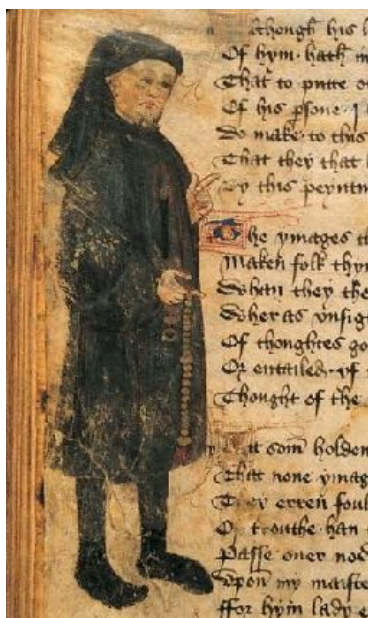 though his l
Of hym hath in
That to putte o
Of his psone I
Do make to this
That they that
By this peyntu
The ymages th
Maken folk thyn
Whan they the
Wher as vnsig
Of thoughtes go
Or entailed yf
Thought of the
som holden
That none ymag
They erren foul
Of trouthe han
Passe ouer no
Vpon my maiste
ffor hym lady e